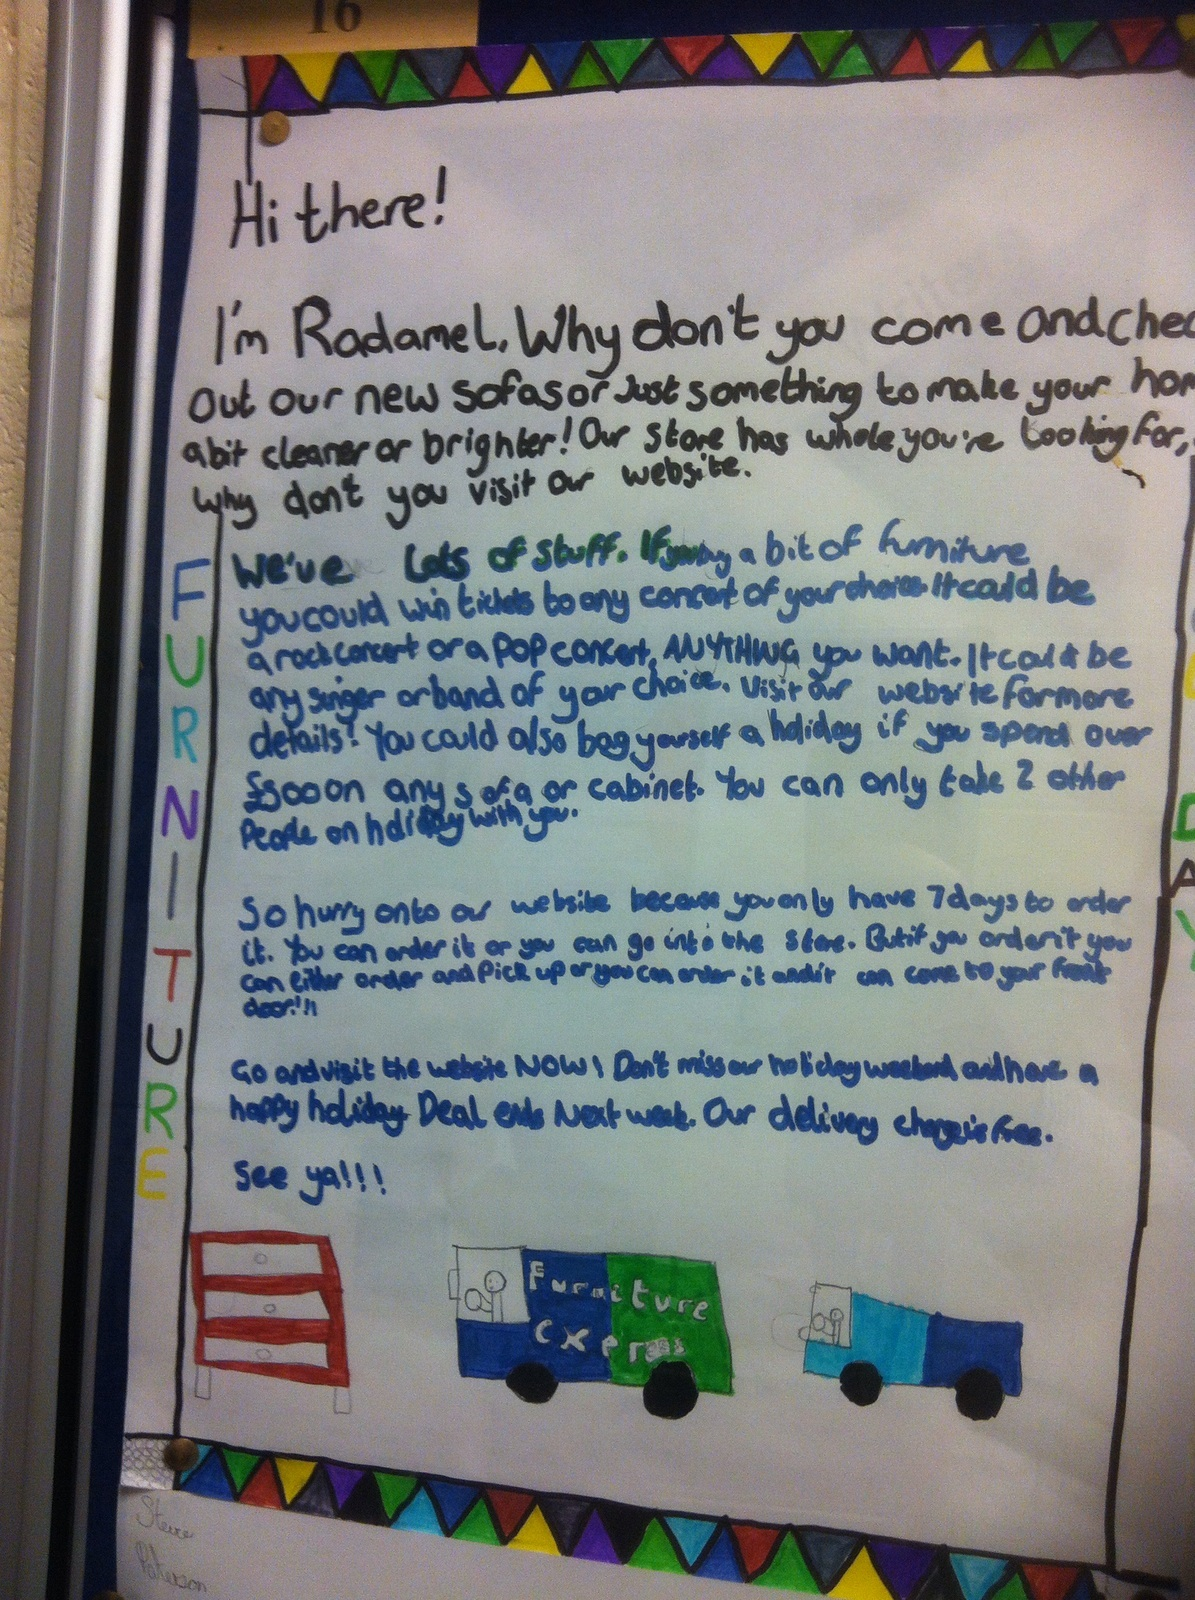 16
Hi there!
I'm Radamel. Why don't you come and Chec
out our new sofas or Just something to make your hom
a bit cleaner or brighter! Our store has whole you're Looking for,
why don't you visit our website.
We've Lots of stuff. If you buy a bit of furniture
you could win tickets to any concert of your choice. It could be
a rock concert or a pop concert, ANYTHING you want. It could be
any singer or band of your choice. Visit our website for more
details! You could also bag yourself a holiday if you spend over
£500 on any sofa or cabinet. You can only take 2 other
People on holiday with you.
So hurry onto our website because you only have 7 days to order
it. You can order it or you can go into the store. But if you order it you
can either order and Pick up or you can order it and it can come to your front
door!!!
Go and visit the website NOW! Don't miss our holiday weekend and have a
happy holiday. Deal ends Next week. Our delivery charge is free.
See ya!!!
FURNITURE
DAY
Furniture
express
Steve
Paterson